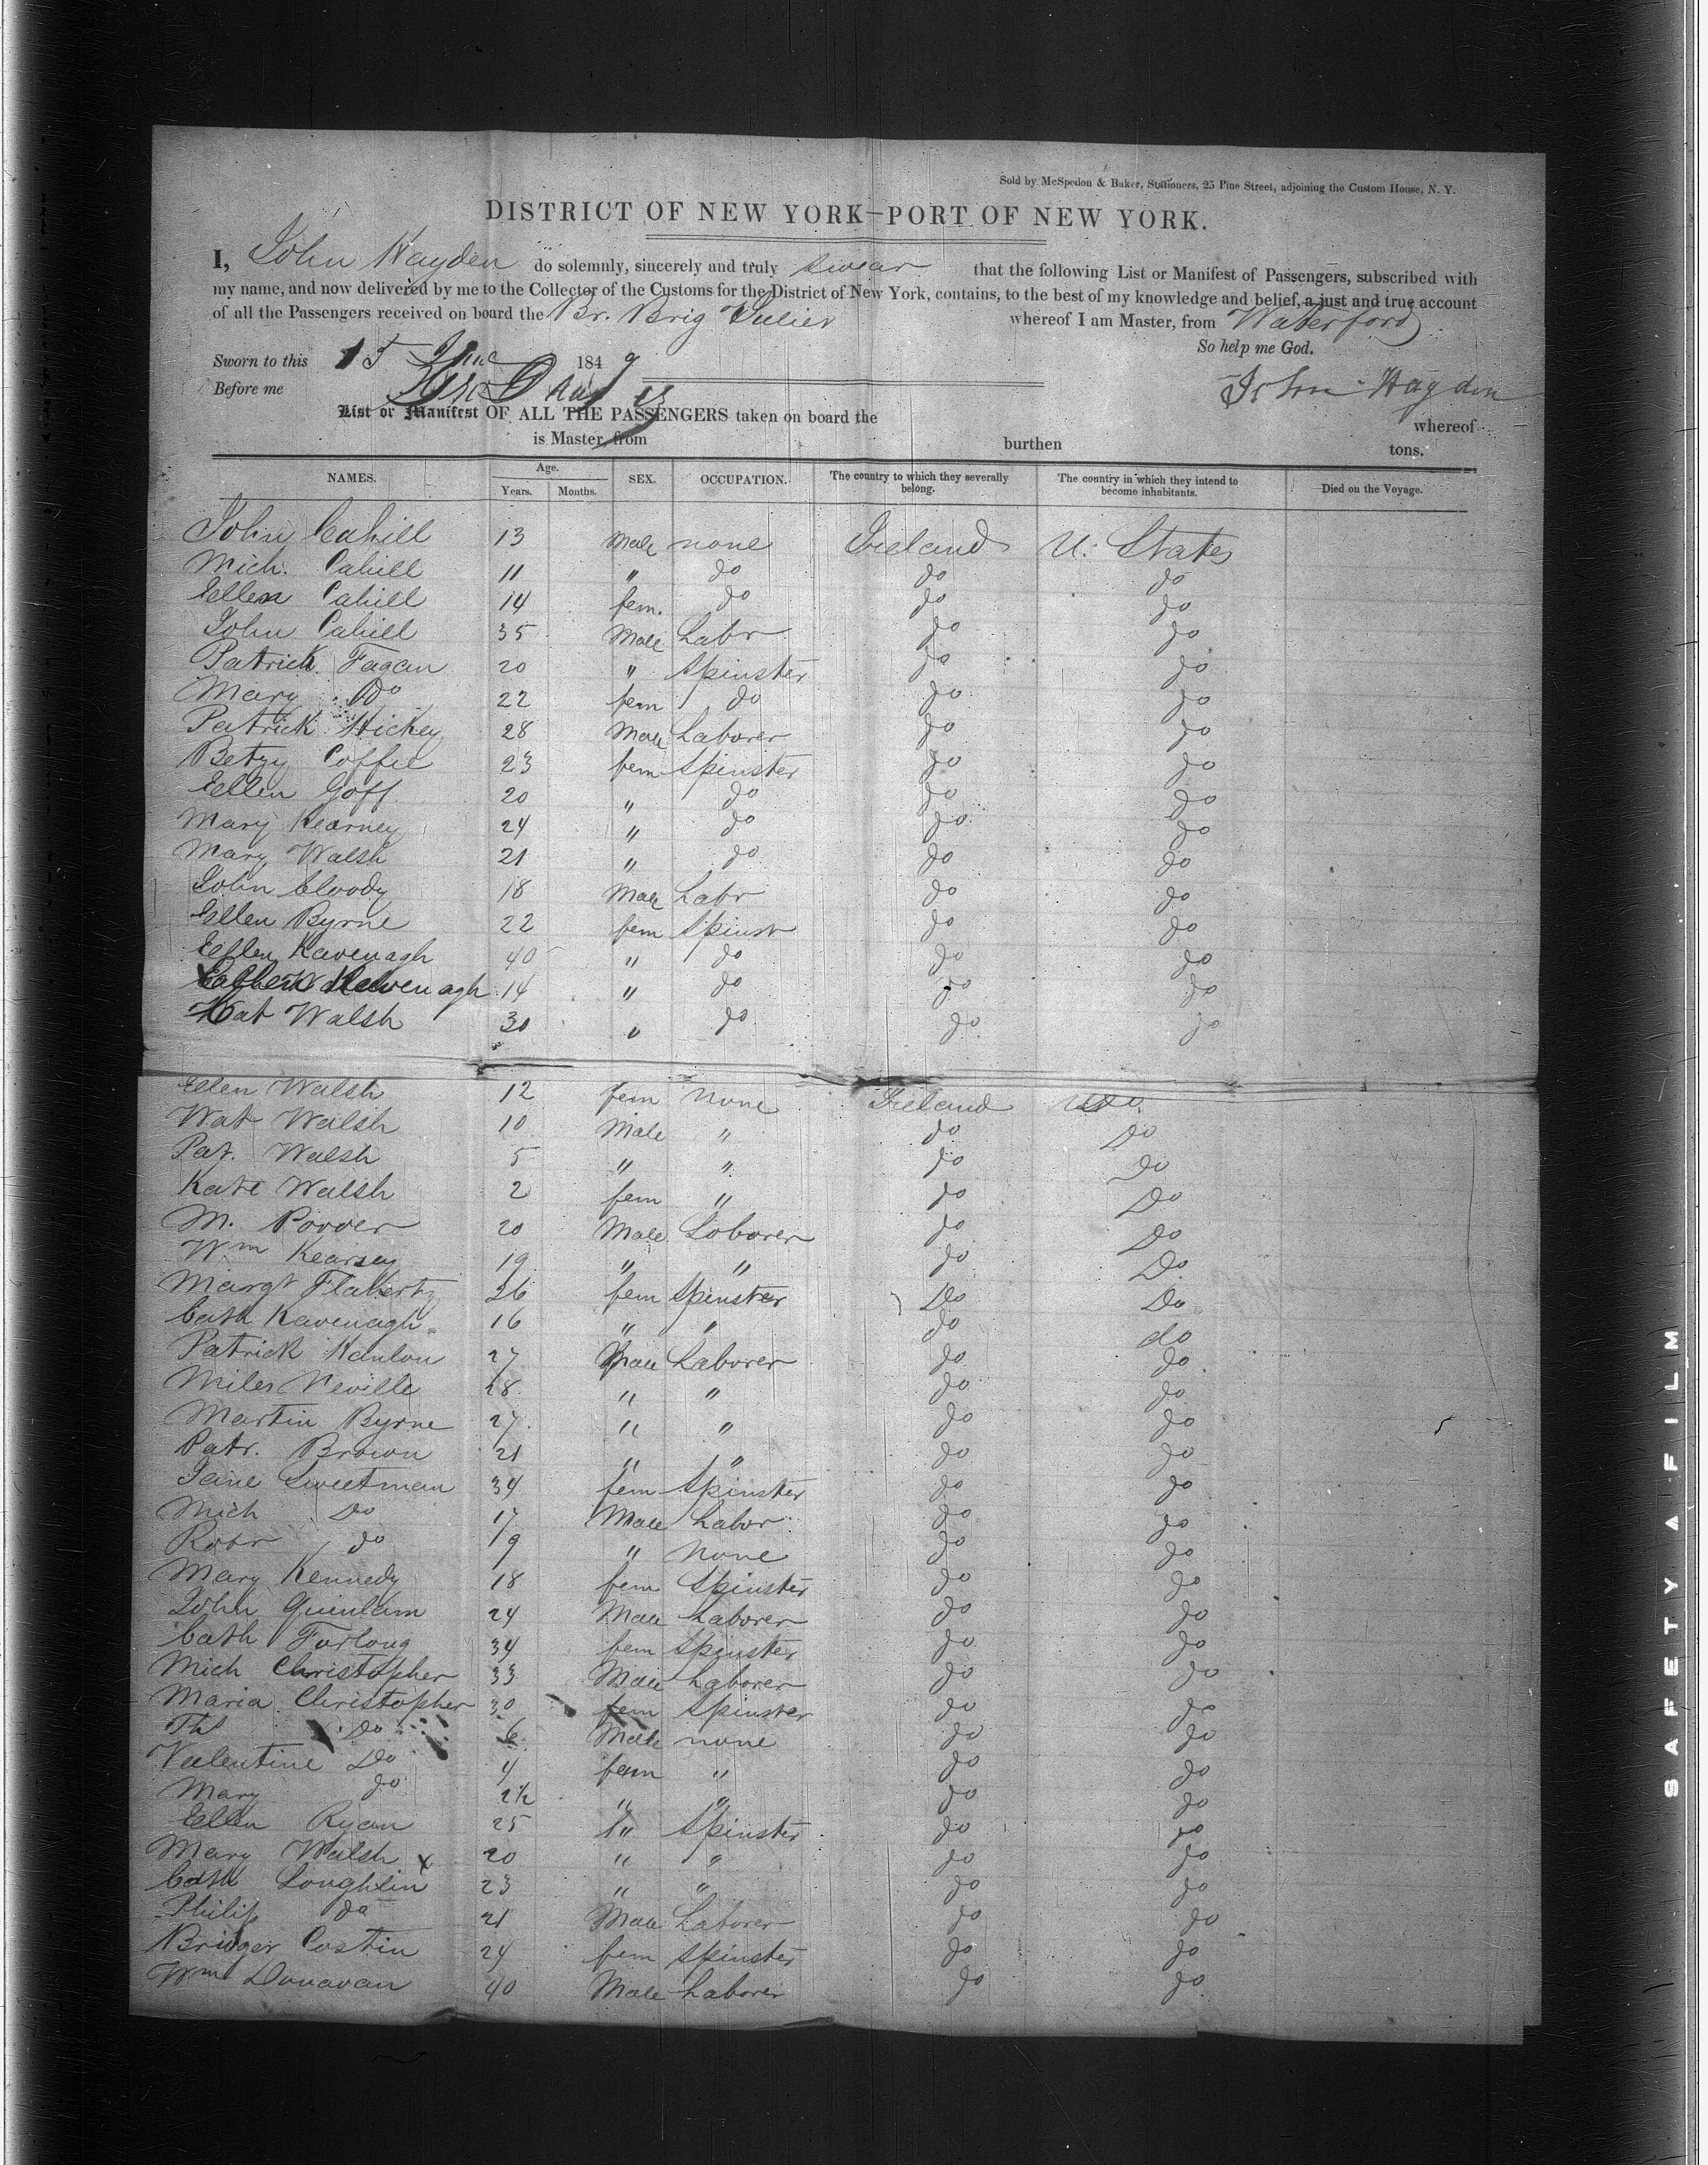 Sold by McSpedon & Baker, Stationers, 25 Pine Street, adjoining the Custom House, N. Y.
DISTRICT OF NEW YORK—PORT OF NEW YORK.
I, John Hayden do solemnly, sincerely and truly swear that the following List or Manifest of Passengers, subscribed with
my name, and now delivered by me to the Collector of the Customs for the District of New York, contains, to the best of my knowledge and belief, a just and true account
of all the Passengers received on board the Br. Brig whereof I am Master, from Waterford
So help me God.
Sworn to this 15 June 1849
Before me John Hayden
List or Manifest OF ALL THE PASSENGERS taken on board the whereof
is Master, from burthen tons.
NAMES. Age. Years. Months. SEX. OCCUPATION. The country to which they severally belong. The country in which they intend to become inhabitants. Died on the Voyage.
John Cahill 13 Male none Ireland U. States
Mich. Cahill 11 " do do do
Ellen Cahill 14 fem. do do do
John Cahill 35 Male Labr do do
Patrick Fagan 20 " Spinster do do
Mary Do 22 fem do do do
Patrick Hickey 28 Male Laborer do do
Betzy Coffee 23 fem Spinster do do
Ellen Goff 20 " do do do
Mary Kearney 24 " do do do
Mary Walsh 21 " do do do
John Cloody 18 Male Labr do do
Ellen Byrne 22 fem Spinst do do
Ellen Kavenagh 40 " do do do
Kavenagh 14 " do do do
Kat Walsh 30 " do do do
Ellen Walsh 12 fem none Ireland Do
Wat Walsh 10 Male " do Do
Pat. Walsh 5 " " do Do
Kate Walsh 2 fem " do Do
M. Power 20 Male Laborer do Do
Wm Kearsey 19 " " do Do
Margt Flaherty 26 fem Spinster Do Do
Cath Kavenagh 16 " " do do
Patrick Hanlon 27 Male Laborer do do
Miles Neville 28 " " do do
Martin Byrne 27 " " do do
Patr. Brown 21 " " do do
Jane Sweetman 34 fem Spinster do do
Mich Do 17 Male Labor do do
Robr do 9 " None do do
Mary Kennedy 18 fem Spinster do do
John Quinlam 24 Male Laborer do do
Cath Furlong 34 fem Spinster do do
Mich Christopher 33 Male Laborer do do
Maria Christopher 30 fem Spinster do do
Ths Do 6 Male none do do
Valentine Do 4 fem " do do
Mary do 2½ " " do do
Ellen Ryan 25 " Spinster do do
Mary Walsh x 20 " " do do
Cath Loughlin 23 " " do do
Philip do 21 Male Laborer do do
Bridget Costin 24 fem Spinster do do
Wm Donavan 40 Male Laborer do do
SAFETY A FILM